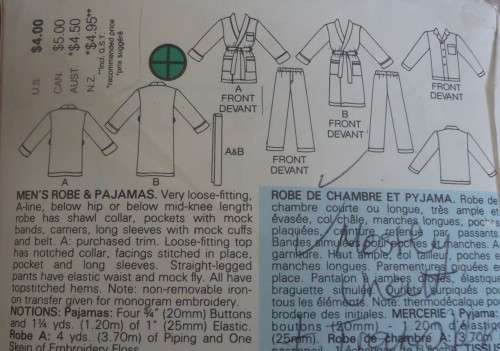 U.S. $4.00
CAN. $5.00
AUST *$4.50
N.Z. *$4.95**
**Incl. G.S.T.
*recommended price
*prix suggéré
A
FRONT
DEVANT
B
FRONT
DEVANT
FRONT
DEVANT
FRONT
DEVANT
A
B
A&B
MEN'S ROBE & PAJAMAS. Very loose-fitting,
A-line, below hip or below mid-knee length
robe has shawl collar, pockets with mock
bands, carriers, long sleeves with mock cuffs
and belt. A: purchased trim. Loose-fitting top
has notched collar, facings stitched in place,
pocket and long sleeves. Straight-legged
pants have elastic waist and mock fly. All have
topstitched hems. Note: non-removable iron-
on transfer given for monogram embroidery.
NOTIONS: Pajamas: Four ¾" (20mm) Buttons
and 1¼ yds. (1.20m) of 1" (25mm) Elastic.
Robe A: 4 yds. (3.70m) of Piping and One
Skein of Embroidery Floss.
ROBE DE CHAMBRE ET PYJAMA. Robe de
chambre courte ou longue, très ample et
évasée, col châle, manches longues, poches
plaquées, refermée par passants.
Bandes simulées pour poches et manches. A:
garniture. Haut ample, col tailleur, poches et
manches longues. Parementures piquées en
place. Pantalon à jambes droites, élastique
braguette simulée. Ourlets surpiqués pour
tous les éléments. Note: thermodécalque pour
broderie des initiales. MERCERIE: Pyjama:
boutons (20mm) - 1.20m élastique
(25mm). Robe de chambre A: 3.70m